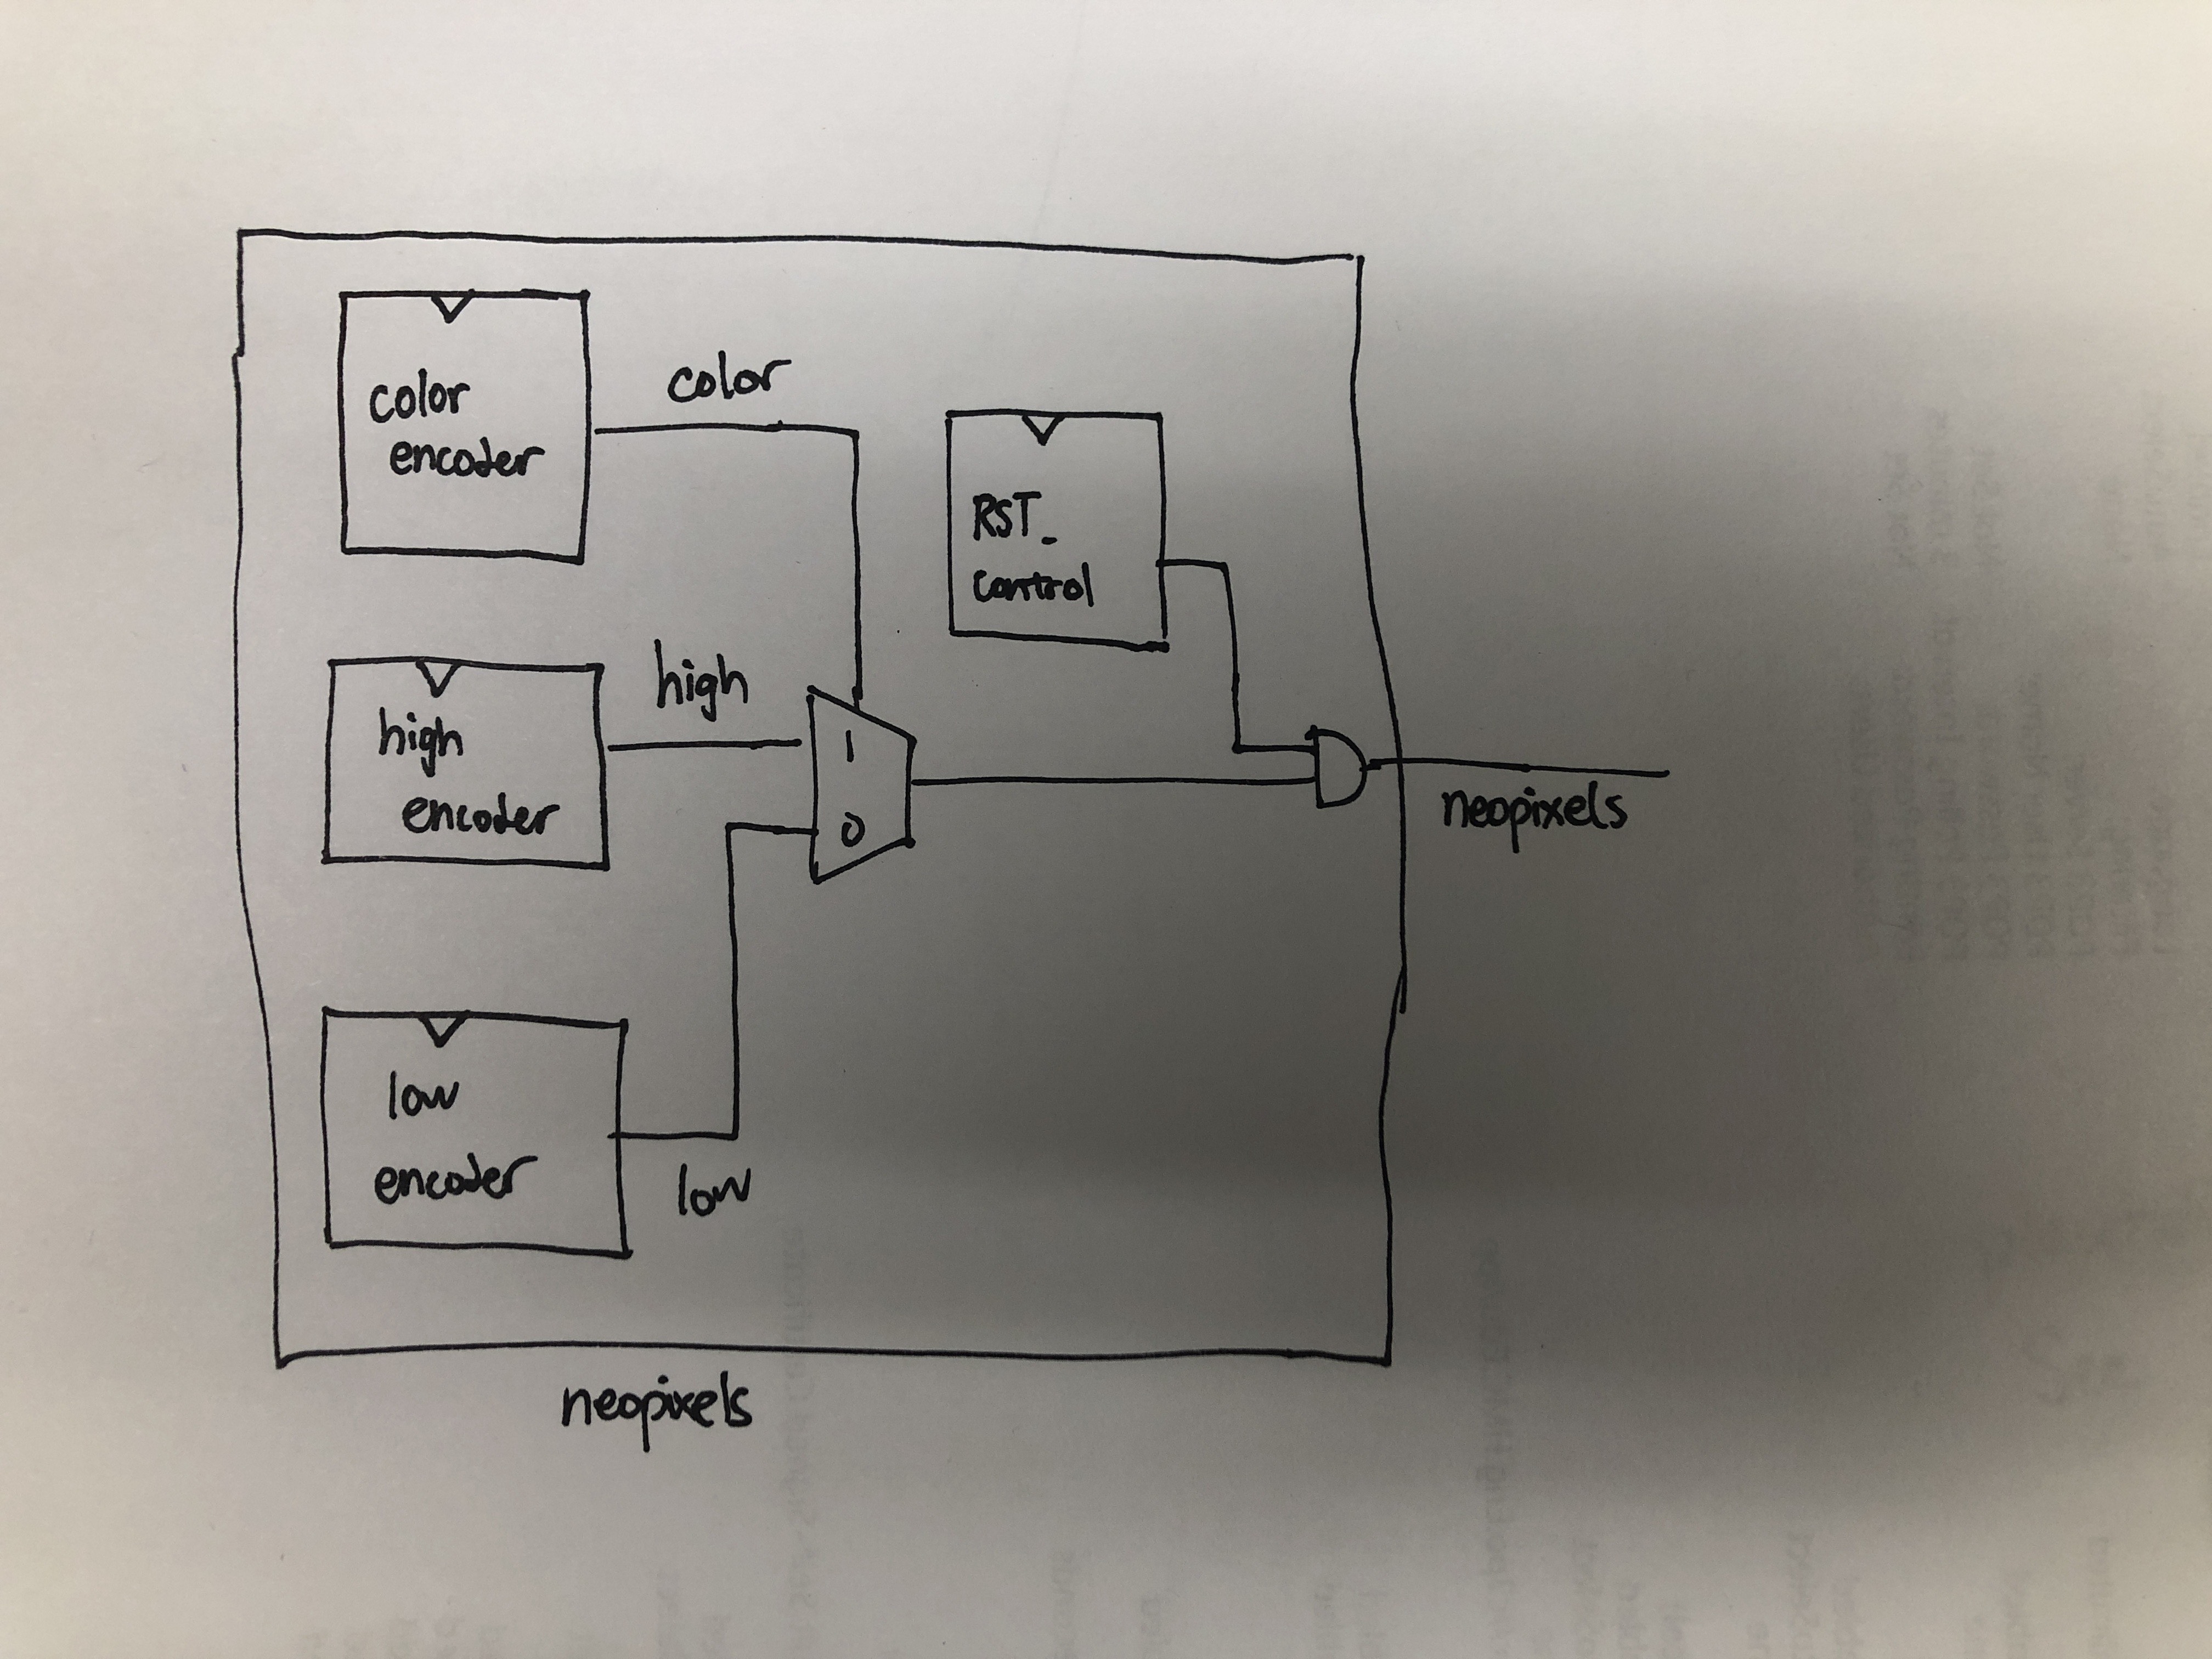 color
encoder
color
RST_
control
high
encoder
high
1
0
neopixels
low
encoder
low
neopixels